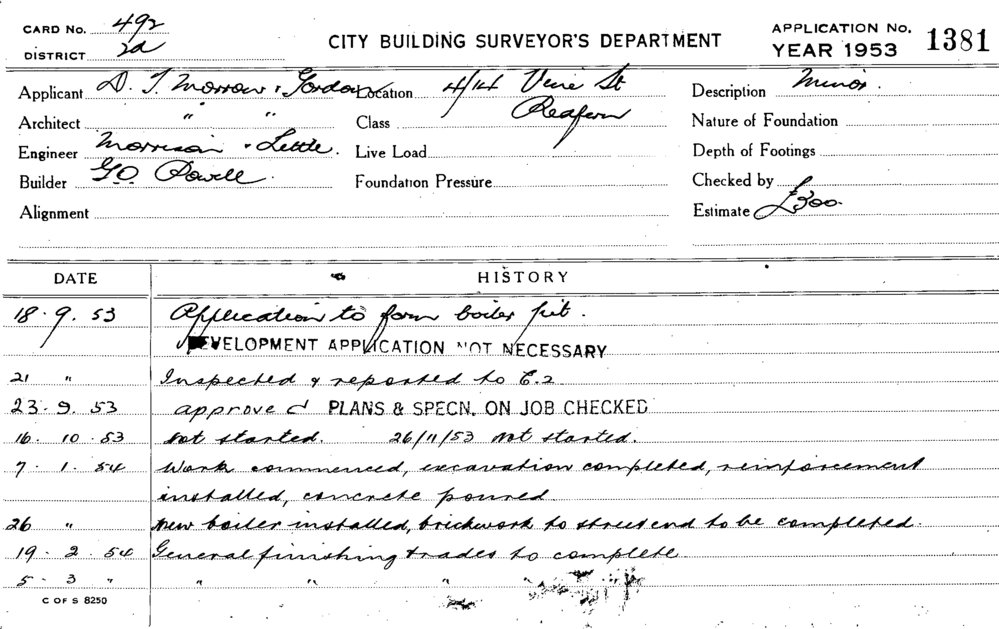 CARD No. 492
DISTRICT 2a
CITY BUILDING SURVEYOR'S DEPARTMENT
APPLICATION No. 1381
YEAR 1953
Applicant D. T. Morrow & Gordon Location 4/14 Vine St Description Minor.
Architect " " Class Redfern Nature of Foundation
Engineer Morrison & Little. Live Load Depth of Footings
Builder G.O. Powell. Foundation Pressure Checked by
Alignment Estimate £300.
DATE HISTORY
18.9.53 Application to form boiler pit.
DEVELOPMENT APPLICATION NOT NECESSARY
21 " Inspected & reported to E.2
23.9.53 approved PLANS & SPECN. ON JOB CHECKED
16.10.53 Not started. 26/11/53 Not started.
7.1.54 Work commenced, excavation completed, reinforcement
installed, concrete poured
26 " New boiler installed, brickwork to street end to be completed.
19.2.54 General finishing trades to complete
5.3 " " " "
C OF S 8250